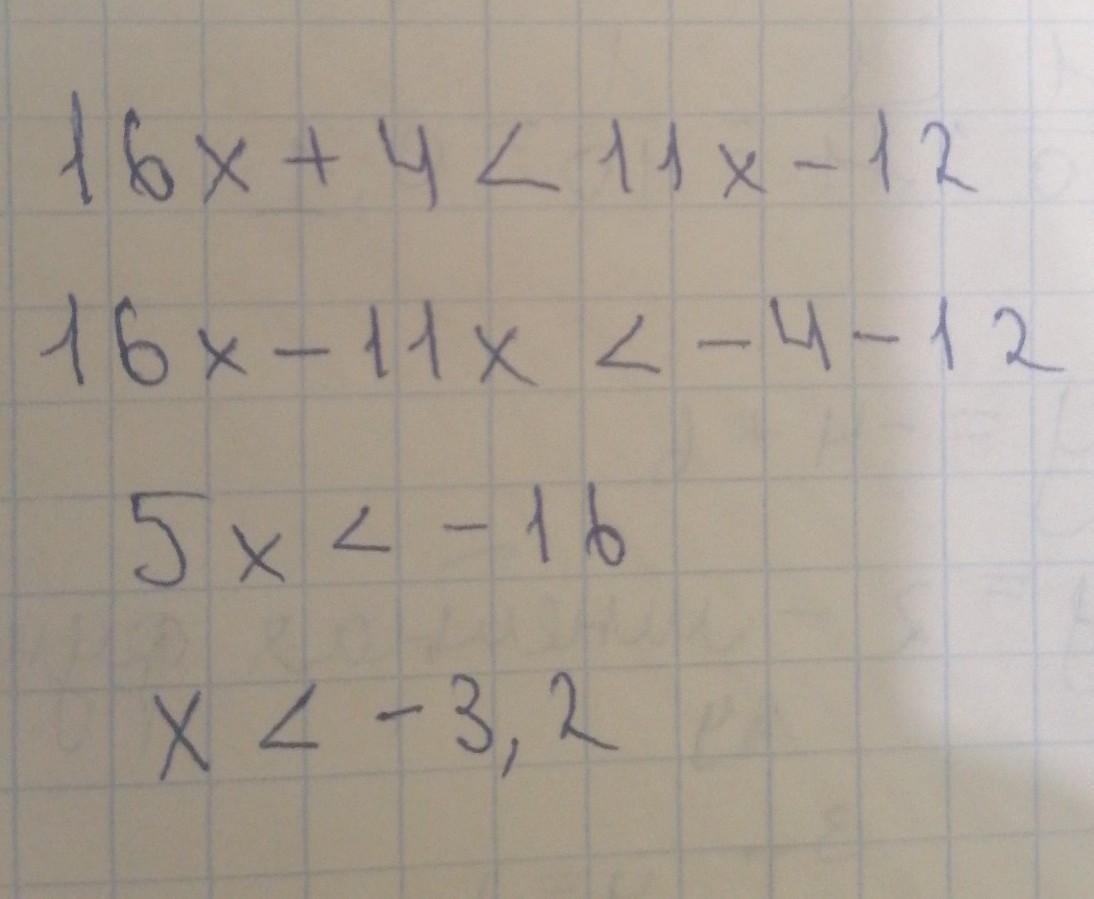 16x + 4 < 11x - 12
16x - 11x < - 4 - 12
5x < - 16
x < - 3,2